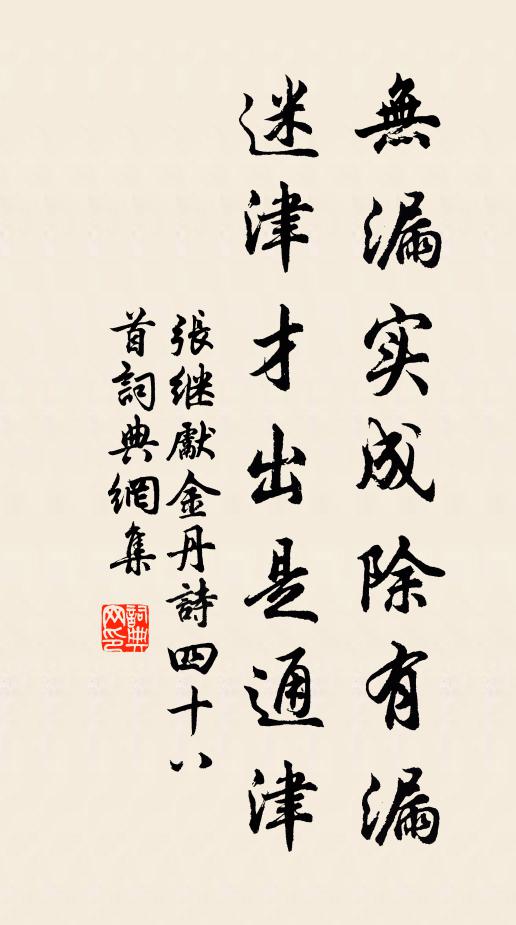 無漏实成除有漏
迷津才出是通津
張继獻金丹詩四十八
首詞典網集
詞典网印